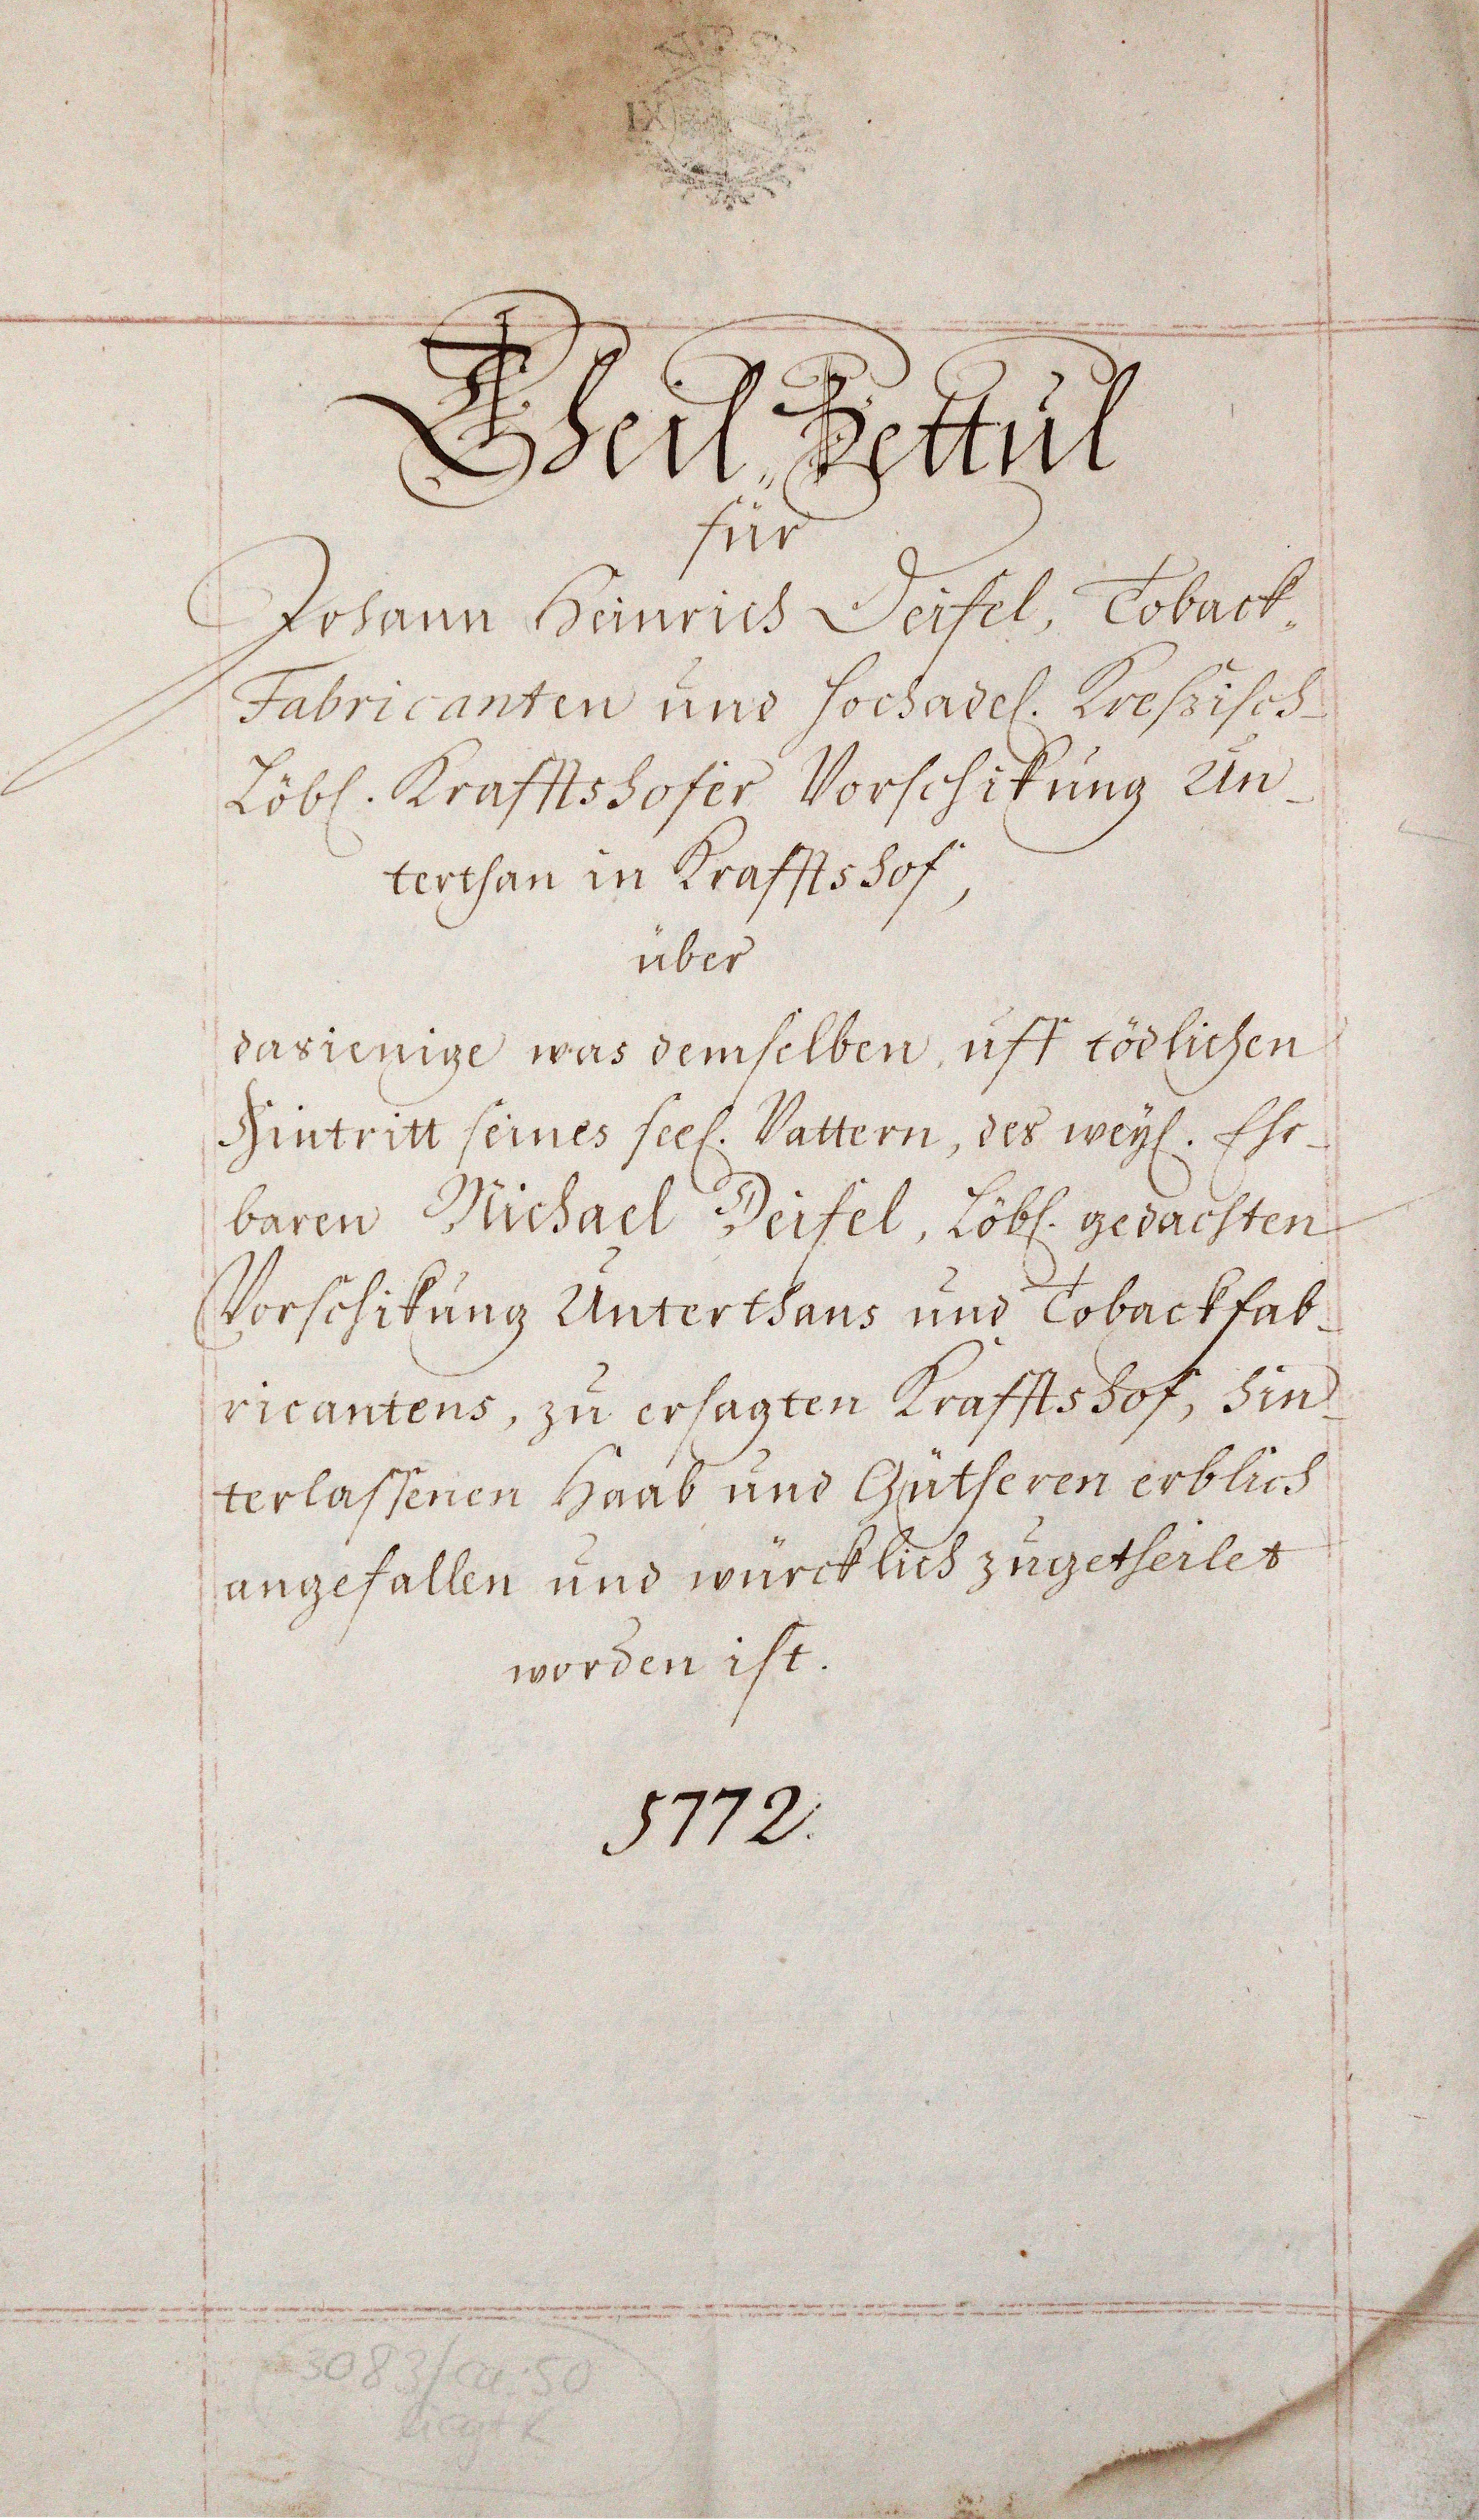 Theil„Zettul
für
Johann Heinrich Deisel, Toback„
Fabricanten und hochadel. Kreßisch-
Löbl. Krafftshofer Vorschikung Un-
terthan in Krafftshof,
über
dasienige was demselben, uff tödlichen
Hintritt seines seel. Vattern, des weyl. Ehr-
baren Michael Deisel, Löbl. gedachten
Vorschikung Unterthans und Tobackfab-
ricantens, zu ersagten Krafftshof, hin-
terlassenen Haab und Gütheren erblich
angefallen und würcklich zugetheilet
worden ist.
1772.
3083/ca. 50